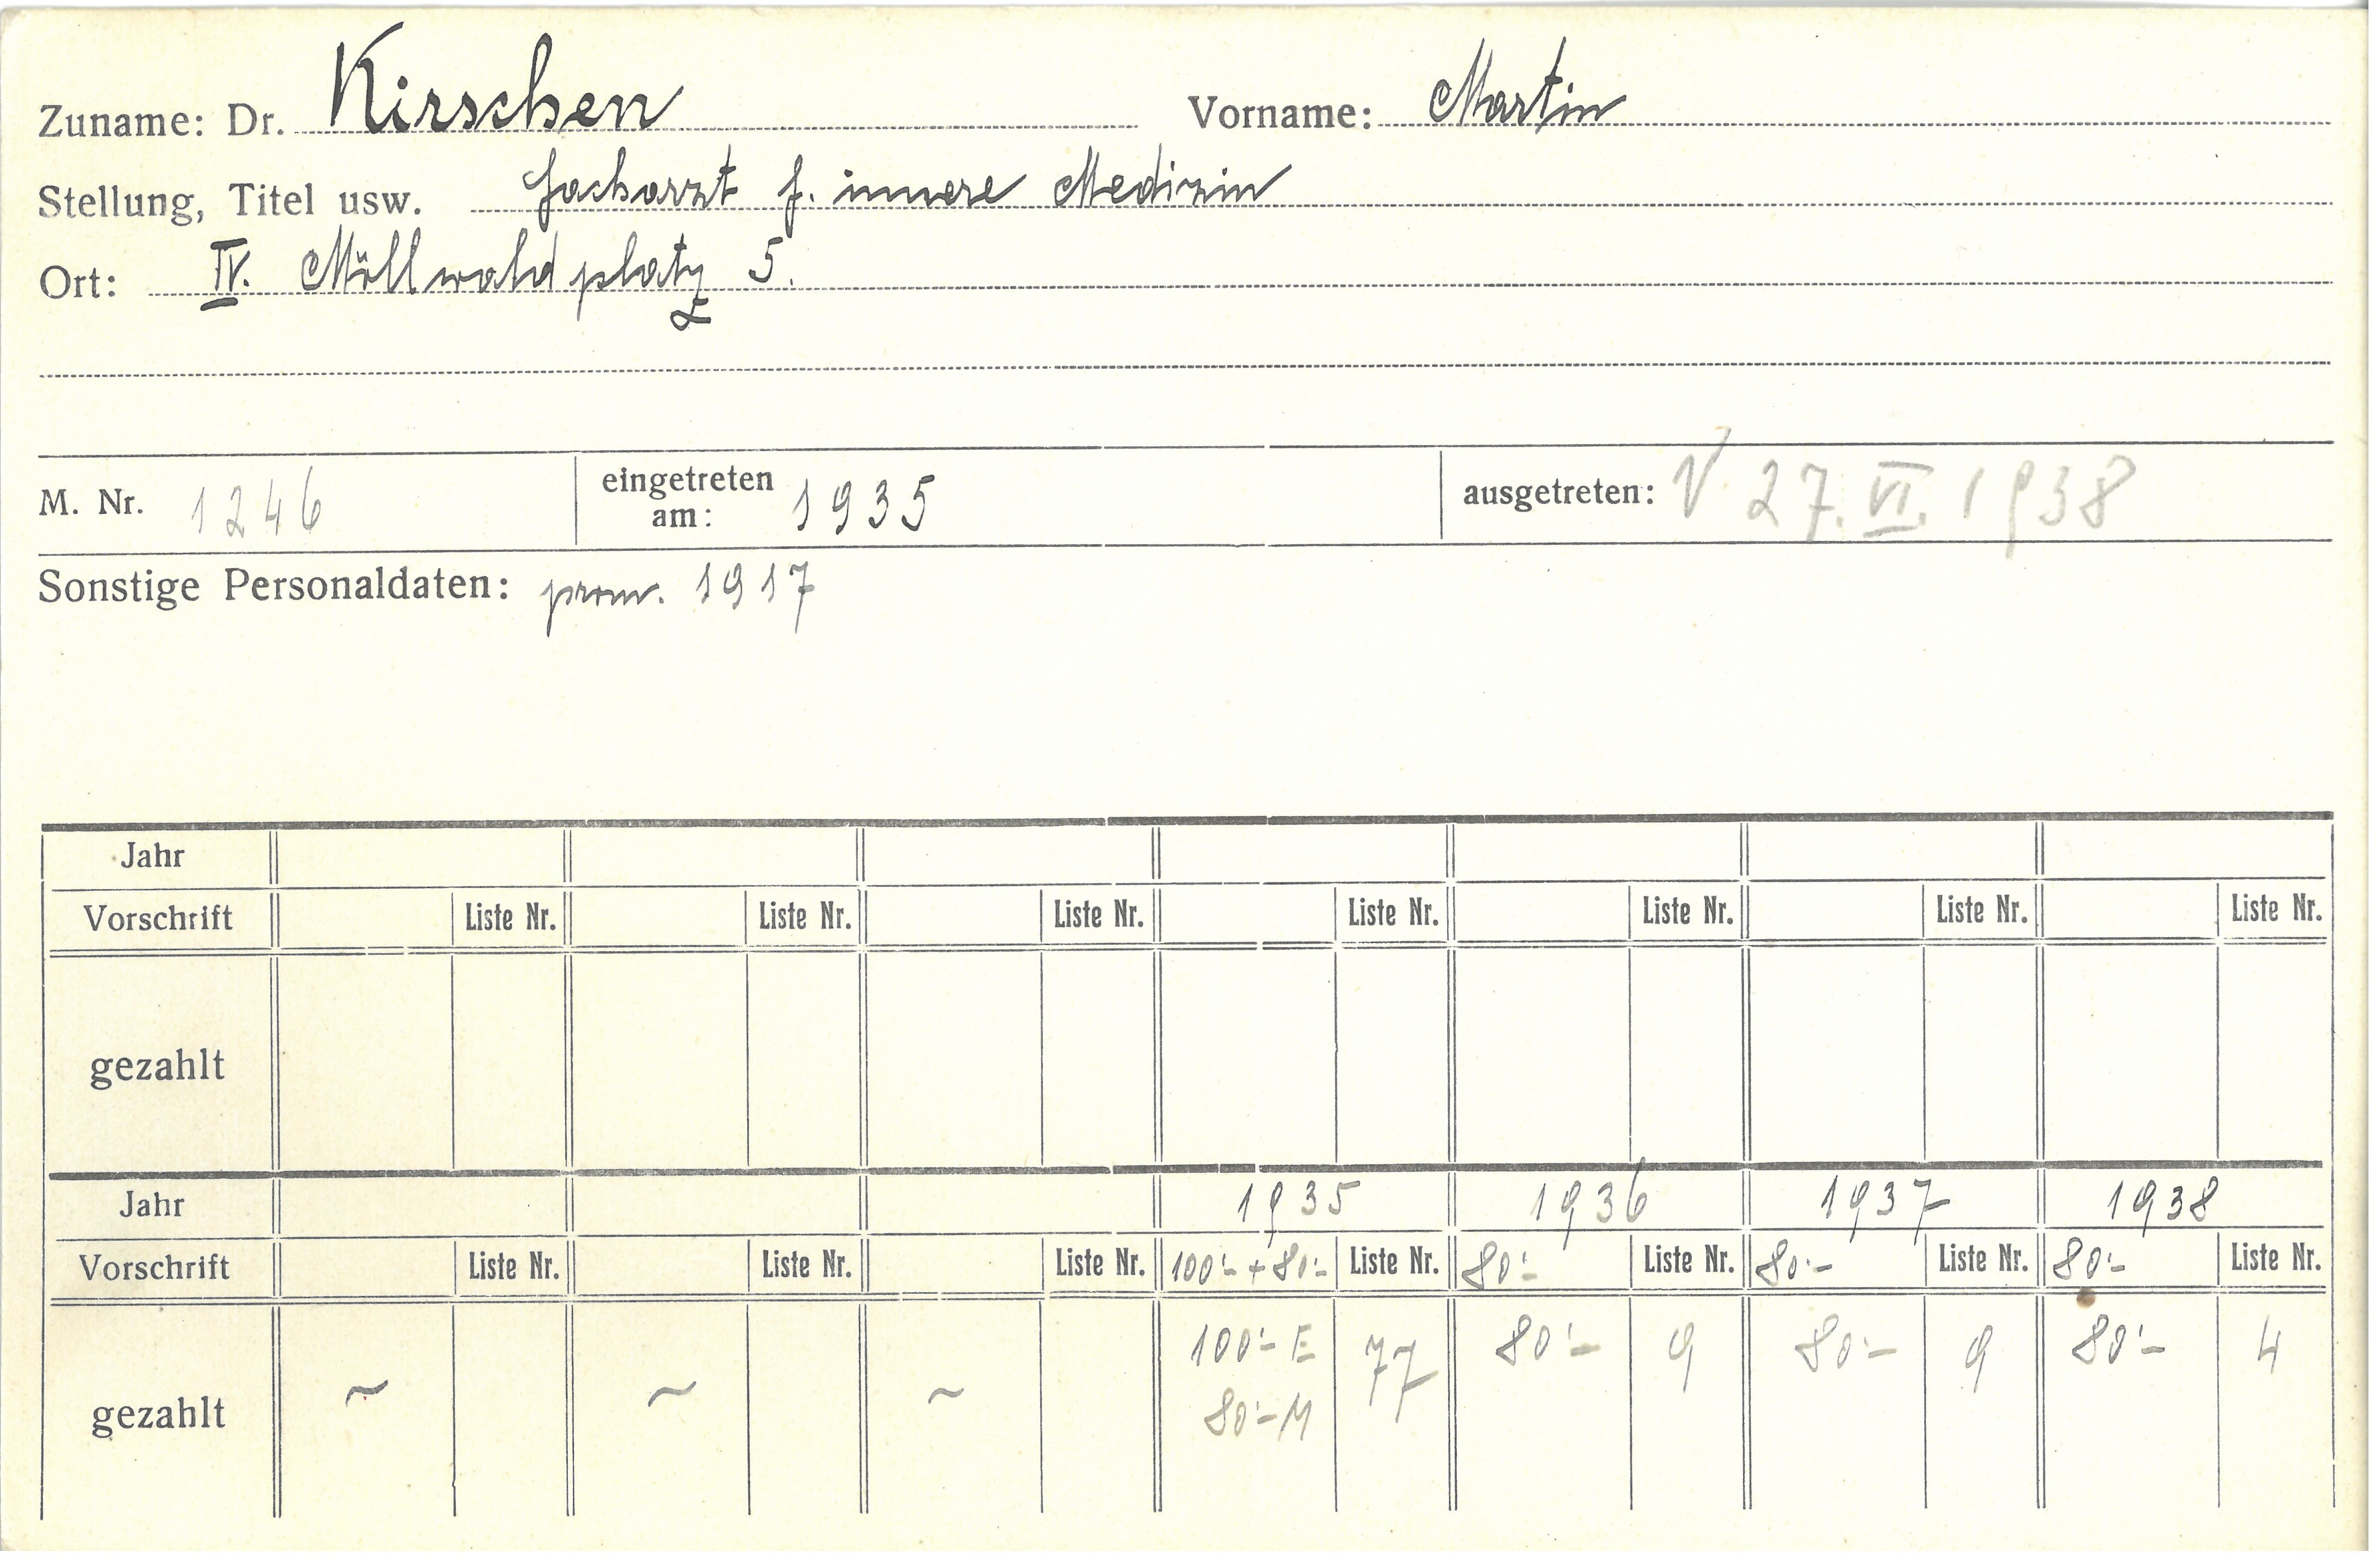 Zuname: Dr. Kirschen Vorname: Martin
Stellung, Titel usw. Facharzt f. innere Medizin
Ort: IV. Möllwaldplatz 5.
M. Nr. 1246 eingetreten am: 1935 ausgetreten: V 27. VI. 1938
Sonstige Personaldaten: prom. 1917
Jahr
Vorschrift Liste Nr. Liste Nr. Liste Nr. Liste Nr. Liste Nr. Liste Nr. Liste Nr.
gezahlt
Jahr 1935 1936 1937 1938
Vorschrift Liste Nr. Liste Nr. Liste Nr. 100·- + 80·- Liste Nr. 80·- Liste Nr. 80·- Liste Nr. 80·- Liste Nr.
gezahlt ~ ~ ~ 100·- E 77 80·- 9 80·- 9 80·- 4
80·- M